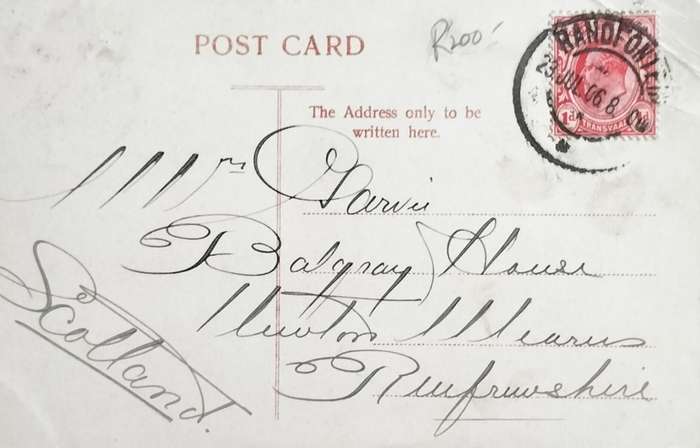 POST CARD
R200-
RANDFONTEIN
23 JUL 06
1d TRANSVAAL
The Address only to be
written here.
Mrs Garvie
Balgray House
Newton Mearns
Renfrewshire
Scotland.